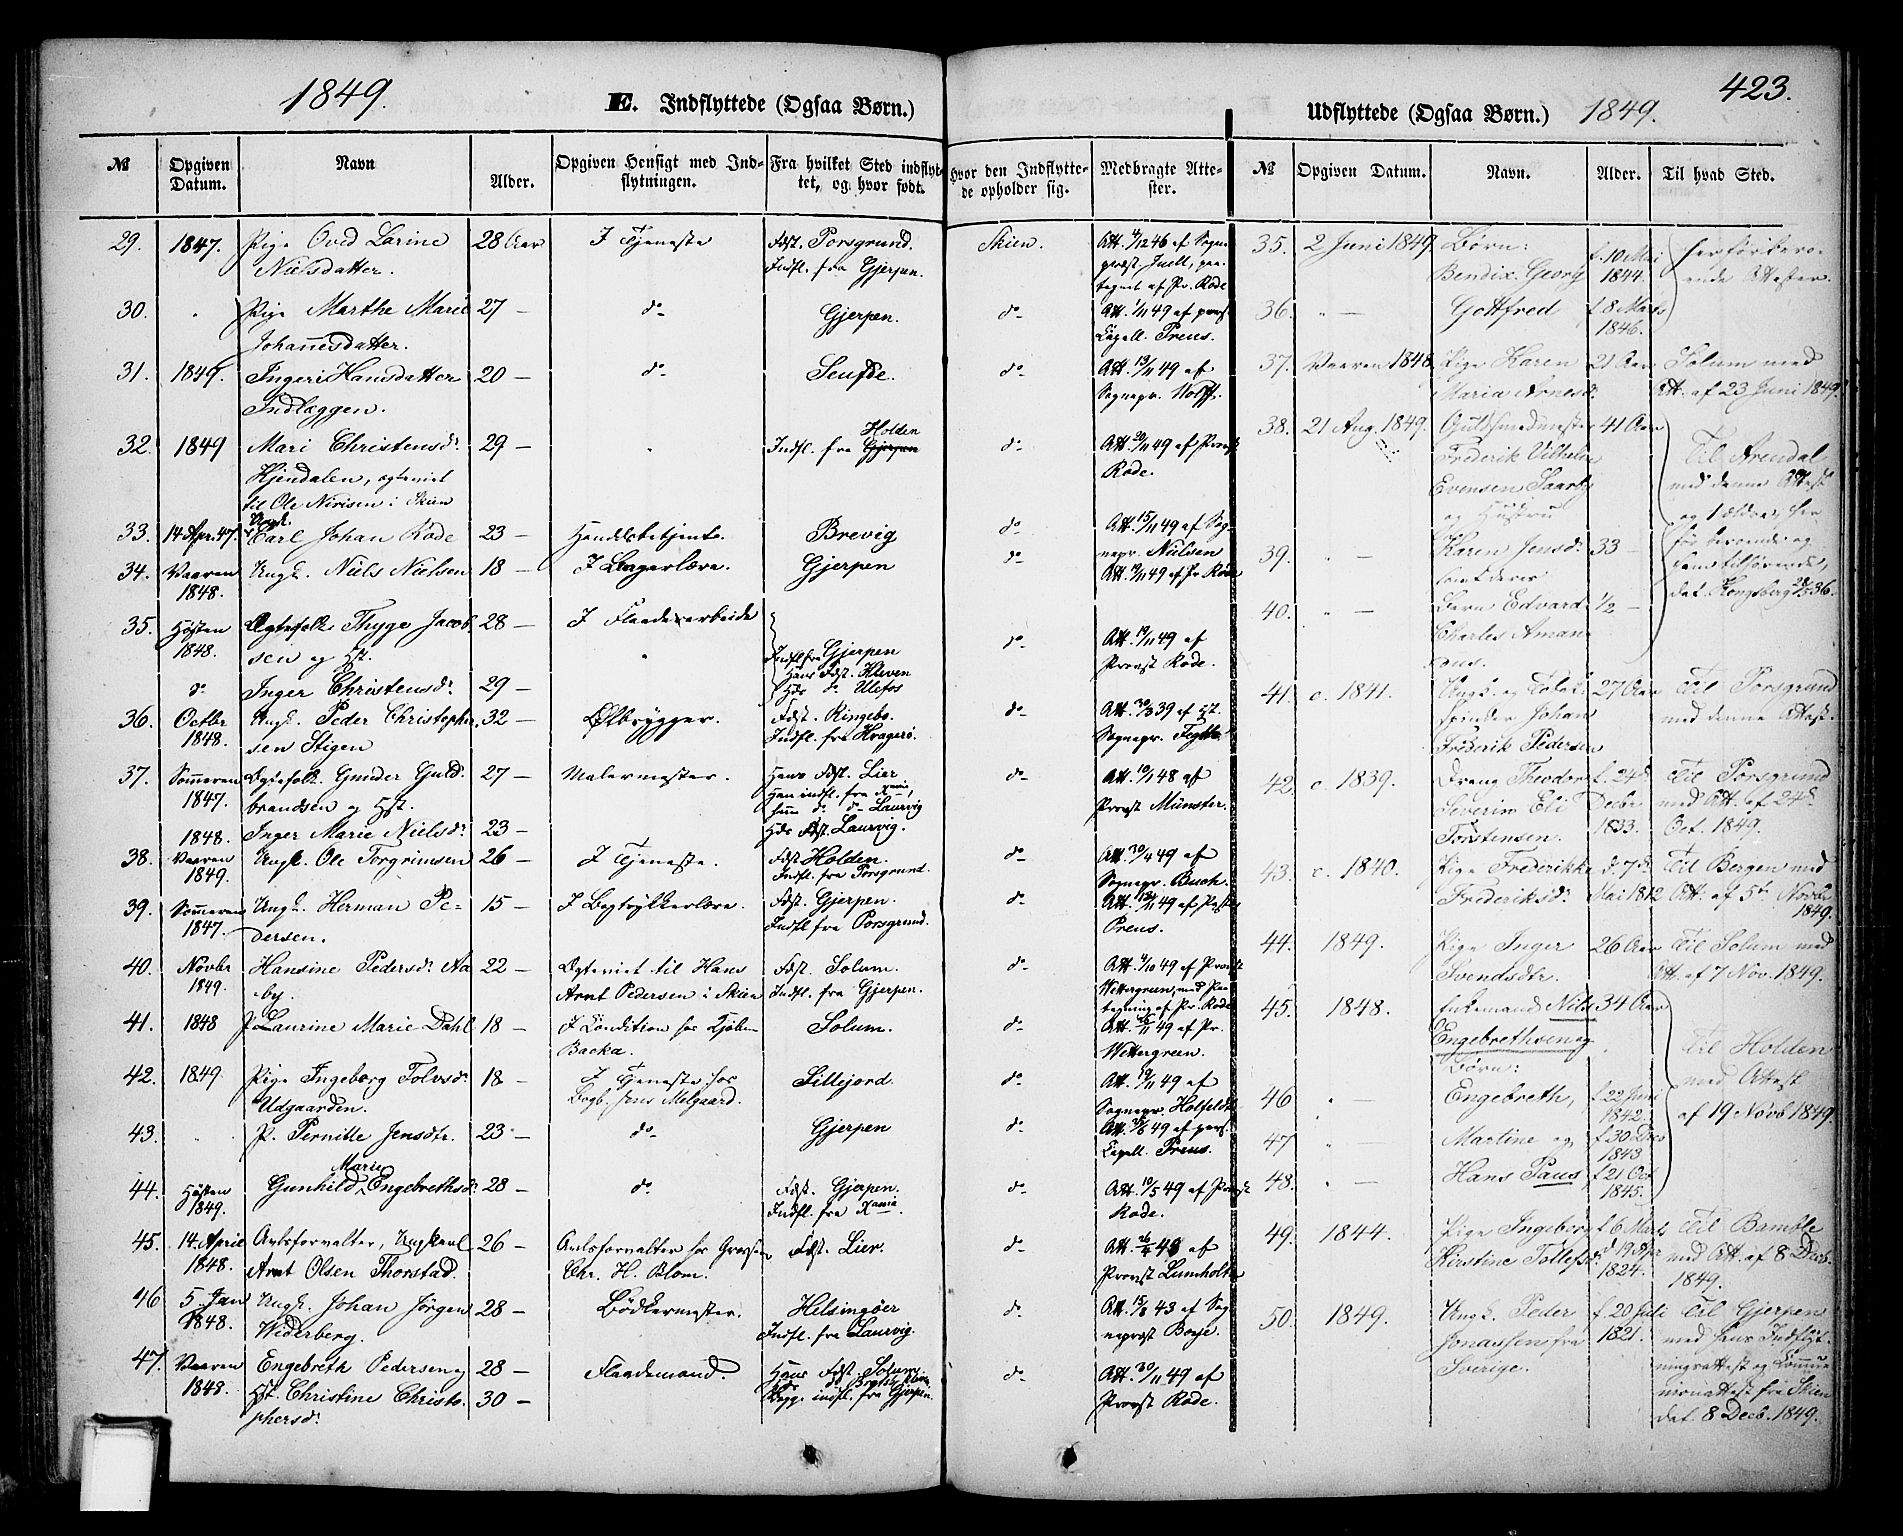 1849.
E. Indflyttede (Ogsaa Børn.)
№ Opgiven Datum. Navn Alder. Opgiven Hensigt med Indflytningen. Fra hvilket Sted indflyttet, og hvor født. Hvor den Indflyttede opholder sig. Medbragte Attester.
29. 1847. Pige Oved Larine 28 Aar I Tjeneste Født. Porsgrund. Skien. Att. 4/12 46 af Sogne
Nielsdatter. Indfl. fra Gjerpen. præst Juell, paa
tegnet af Pr. Rode
30. " Pige Marthe Marie 27 — do Gjerpen. do Att. 1/11 49 af pers.
Johannesdatter. Capell. Preus.
31. 1849. Ingeri Hansdatter 20 — do Seufde. do Att. 13/11 49 af
Indlæggen. Sognepr. Wolff.
32. 1849 Mari Christensdr 29 — " Indfl. fra Holden Gjerpen do Att. 20/11 49 af Provst
Hjendalen, egteviet Rode.
til Ole Nirisen i Skien
33. 14 Apr. 47. Ungk. Carl Johan Rode 23 — Handelsbetjente. Brevig do Att. 15/11 49 af Sog-
nepr. Nielsen
34. Vaaren Ungk. Niels Nielsen 18 — I Bagerlære. Gjerpen do Att. 19/11 49 af Pr. Rode
1848.
35. Høsten Egtefolk Thyge Jacob 28 — I Flaadearbeide do Att. 19/11 49 af
1848. sen og Hst. " Indfl fra Gjerpen Provst Rode.
Hans Født. Kleven
do Inger Christensdr 29 — Hds do Ulefos
36. Octbr Ungk. Peder Christopher 32 — Ølbrygger. Født. Ringebo. do Att. 30/3 39 af Hst.
1848. sen Stigen Indfl. fra Kragerø. Sognepr.
37. Sommeren Egtefolk Gunder Guld 27 — Malermester. Hans Født. Lier. do Att. 10/1 48 af
1847. brandsen og Hst. Han indfl. fra Xania, Provst Münster.
hun do do Laurvig
1848. Inger Marie Nielsdr 23 — Hds Født. Laurvig.
38. Vaaren Ungk. Ole Torgrimsen 26 — I Tjeneste. Født Holden. do Att. 30/4 49 af
1849. Indfl. fra Porsgrund. Sognepr. Buch.
39. Sommeren Ungk. Herman Pe- 15 — I Bogtrykkerlære. Født. Gjerpen. do Att. 13/11 49 af
1847. dersen. Indfl fra Porsgrund. Preus.
40. Novbr Hansine Pedersdr Aa 22 — Egteviet til Hans Født. Solum. do Att. 4/10 49 af Provst
1849. by. Arnt Pedersen i Skien Indfl. fra Gjerpen. Wettergreen, med Paa
tegning af Pr. Rode
41. 1848 P. Laurine Marie Dahl 18 — I Condition hos Kjøbm Solum. do Att. 26/11 49 af Pr.
Backa. Wettergreen.
42. 1849. Pige Ingeborg Tolvsdr 18 — I Tjeneste hos Sillejord. do Att. 19/11 49 af
Udgaarden. Bogb. Jens Melgaard. Sognepr. Holfeldt
43. " P. Pernille Jensdtr. 23 — do Gjerpen do Att. 49 af pers.
Capell. Preus.
44. Høsten Gunhild Marie Engebrethsdr 28 — do Født. Gjerpen. do Att. 10/5 49 af Provst
1849. Indfl. fra Xania. Rode.
45. 14 April Avlsforvalter, Ungkarl 26 — Avlsforvalter hos Grosser Født. Lier. do Att. 26/4 48 af
1848. Arnt Olsen Thorstad. Chr. H. Blom. Provst Lumholtz
46 5 Jan Ungk. Johan Jörgen 28 — Bødkermester. Helsingöer do Att. 15/8 43 af Sog
1848. Widerberg. Indfl. fra Laurvig. nepræst Boye.
47. Vaaren Engebreth Pedersen og 28 — Flaademand. Hans Født. Solum do Att. 30/11 49 af
1848. Hst. Christine Christo 30 — Begge indfl. fra Gjerpen. Provst Rode.
phersdr
423.
Udflyttede (Ogsaa Børn.) 1849.
№ Opgiven Datum. Navn. Alder. Til hvad Sted.
35. 2 Juni 1849. Børn: f. 10 Mai herførbero-
Bendix Georg 1844. ende Attester.
36. " — Gottfred f. 8 Marts
1846.
37. Vaaren 1848. Pige Karen 21 Aar Solum med
Maria Arnesdr Att. af 23 Juni 1849.
38. 21 Aug. 1849. Guldsmedmester 41 Aar Til Arendal
Frederik Vilhelm med denne Attest
Evensen Saarby og ældre, her-
og Hustru før beroende og
39. " — Karen Jensdr 33 — ham tilhørende,
samt deres dat. Kongsberg 36.
40. " — Barn Edvard 1/2 —
Charles Aman
41. c. 1841. Ungk. og Tobak 27 Aar Til Porsgrund
spinder Johan med denne Attest.
Frederik Pedersen
42. c. 1839. Dreng Theodor f. 24d Til Porsgrund
Severin Eli Decbr med Att. af 24d
Torstensen. 1833. Oct. 1849.
43. c. 1840. Pige Frederikke d. 7d Til Bergen med
Frederiksdr Mai 1812 Att. af 5te Novbr
1849.
44. 1849. Pige Inger 26 Aar Til Solum med
Svendsdtr. Att. af 7 Nov. 1849.
45. 1848. Enkemand Nils 34 Aar Til Holden
Engebrethsen og med Attest
Børn: af 19 Novb 1849.
46 " — Engebreth, f. 22 Juni
1842.
47 " — Martine og f. 30 Dec
1843
48. " — Hans Paus f. 21 Oct
1845.
49. 1844. Pige Ingeborg f. 6 Marts Til Bamble
Kirstine Tollefsdr d 19 Apr med Att. af 8 Decb.
1824. 1849.
50. 1849. Ungk. Peder f. 20 Juli Til Gjerpen
Jonassen fra 1821. med hans Indflyt-
Sverige. ningsattest og Commu
nionattest fra Skien
dat. 8 Decb. 1849.